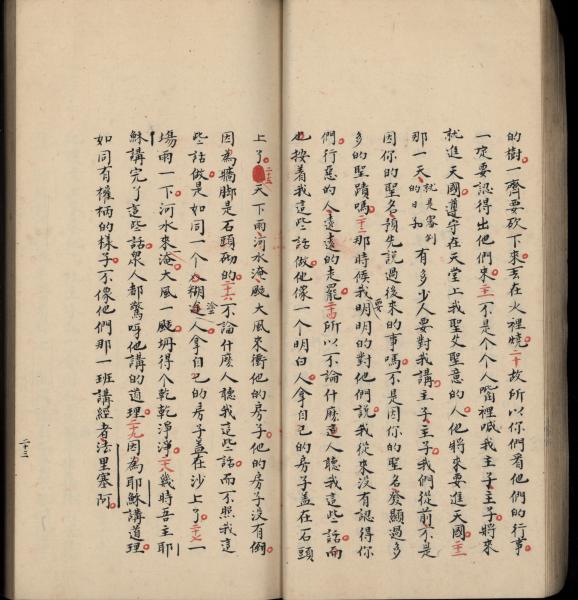 的樹一齊要砍下來丟在火裡燒二十故所以你們看他們的行事
一定要認得出他們來二一不是個個人嘴裡哌我主子主子將來
就進天國遵守在天堂上我聖父聖意的人他將來要進天國二二
那一天就是審判的日和有多少人要對我講主子主子我們從前不是
因你的聖名預先說過後來的事嗎不是因你的聖名發顯過多
多的聖蹟嗎二三那時候我要明明的對他們說我從來沒有認得你
們行惡的人遠遠的走罷二四所以不論什麼人聽我這些話而
也按着我這些話做他像一個明白人拿自己的房子蓋在石頭
上了二五天下雨河水淹颳大風來衝他的房子他的房子沒有倒
因為牆脚是石頭砌的二六不論什麼人聽我這些話而不照我這
些話做是如同一個糊塗人拿自己的房子蓋在沙上了二七一
塲雨一下河水來淹大風一颳坍得个乾乾淨淨二八幾時吾主耶
穌講完了這些話衆人都驚呀他講的道理二九因為耶穌講道理
如同有權柄的樣子不像他們那一班講經者法里塞阿
二十三